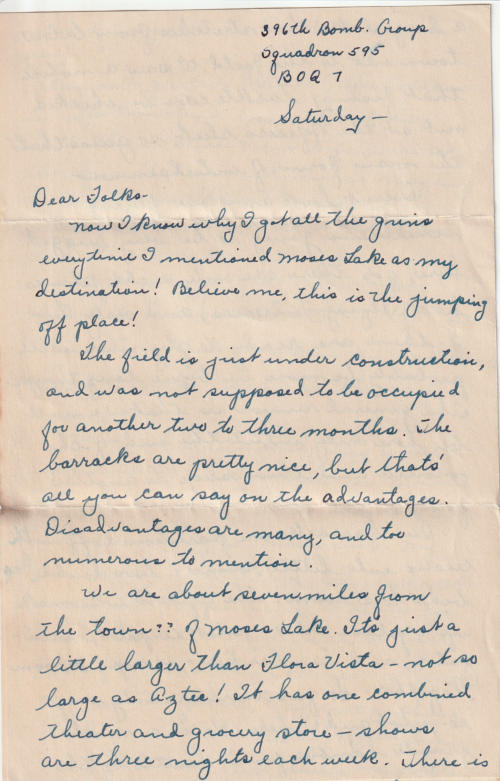 396th Bomb. Group
Squadron 595
BOQ 7
Saturday—
Dear Folks-
Now I know why I got all the grins
everytime I mentioned Moses Lake as my
destination! Believe me, this is the jumping
off place!
The field is just under construction,
and was not supposed to be occupied
for another two to three months. The
barracks are pretty nice, but thats'
all you can say on the advantages.
Disadvantages are many, and too
numerous to mention.
We are about seven miles from
the town?? of Moses Lake. Its just a
little larger than Flora Vista – not so
large as Aztec! It has one combined
theater and grocery store – shows
are three nights each week. There is